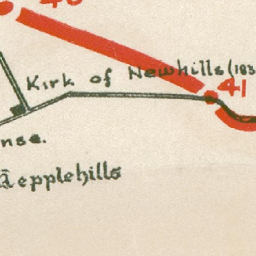 Kirk of Newhills (183
41
nse.
epplehills